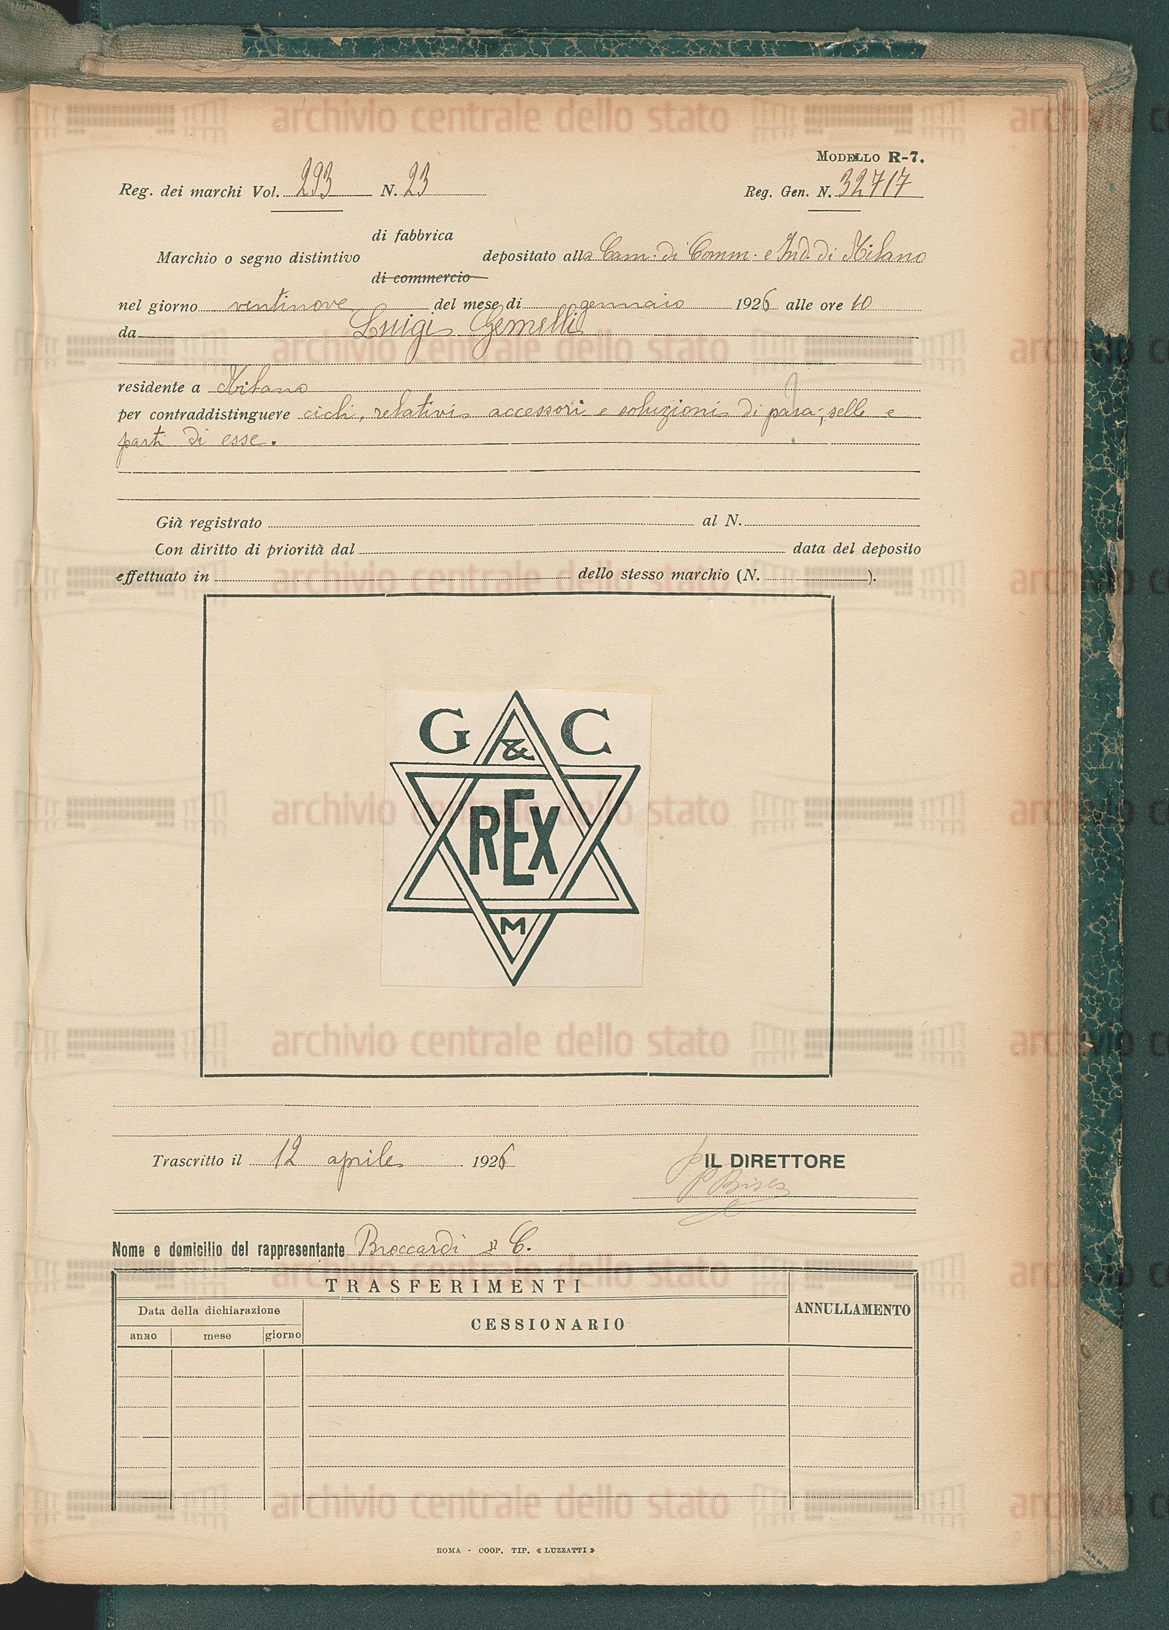 MODELLO R-7.
Reg. dei marchi Vol. 293 N. 23 Reg. Gen. N. 32717
di fabbrica
Marchio o segno distintivo depositato alla Cam. di Comm. e Ind. di Milano
di commercio
nel giorno ventinove del mese di gennaio 1926 alle ore 10
da Luigi Gemelli
residente a Milano
per contraddistinguere cicli, relativi accessori e soluzioni di para, selle e
parti di esse.
Già registrato al N.
Con diritto di priorità dal data del deposito
effettuato in dello stesso marchio (N. ).
G & C
REX
M
Trascritto il 12 aprile 1926 IL DIRETTORE
Nome e domicilio del rappresentante Broccardi & C.
TRASFERIMENTI
Data della dichiarazione
ANNULLAMENTO
CESSIONARIO
anno mese giorno
ROMA - COOP. TIP. « LUZZATTI »
archivio centrale dello stato